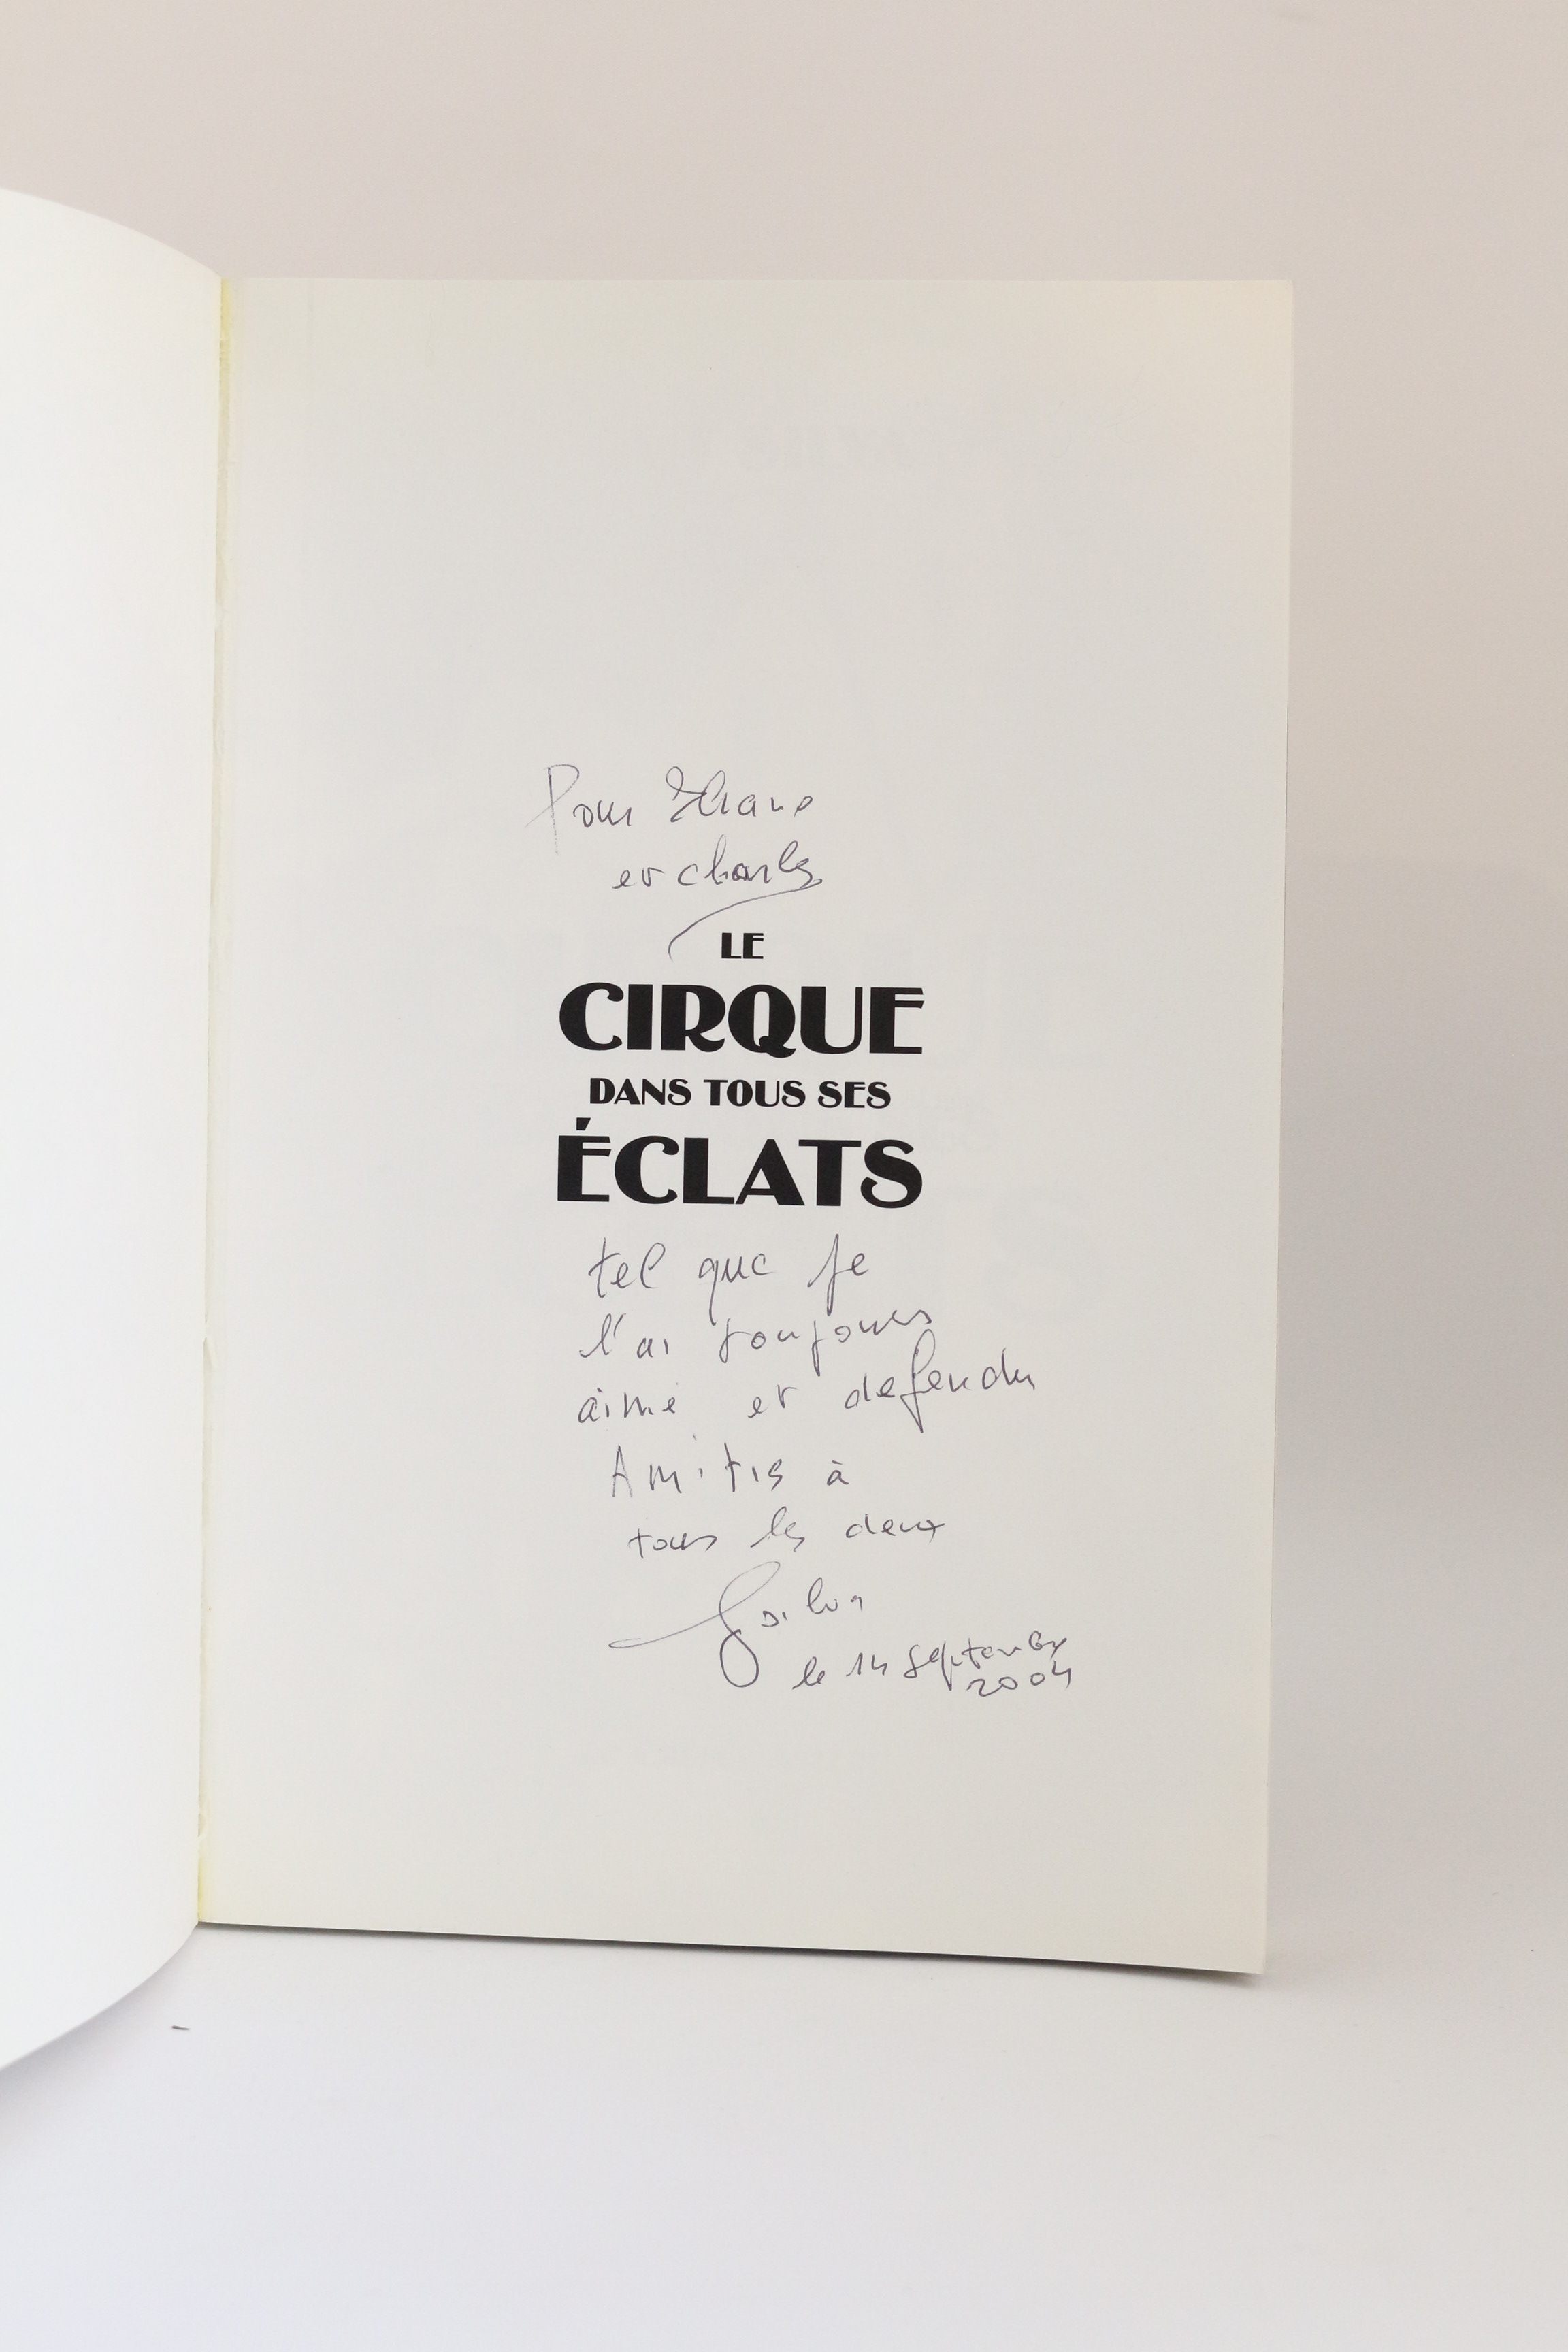 Pour
et Charles
LE
CIRQUE
DANS TOUS SES
ÉCLATS
tel que je
l'ai toujours
aimé et defendu
Amitiés à
tous les deux
le 14 septembre
2004